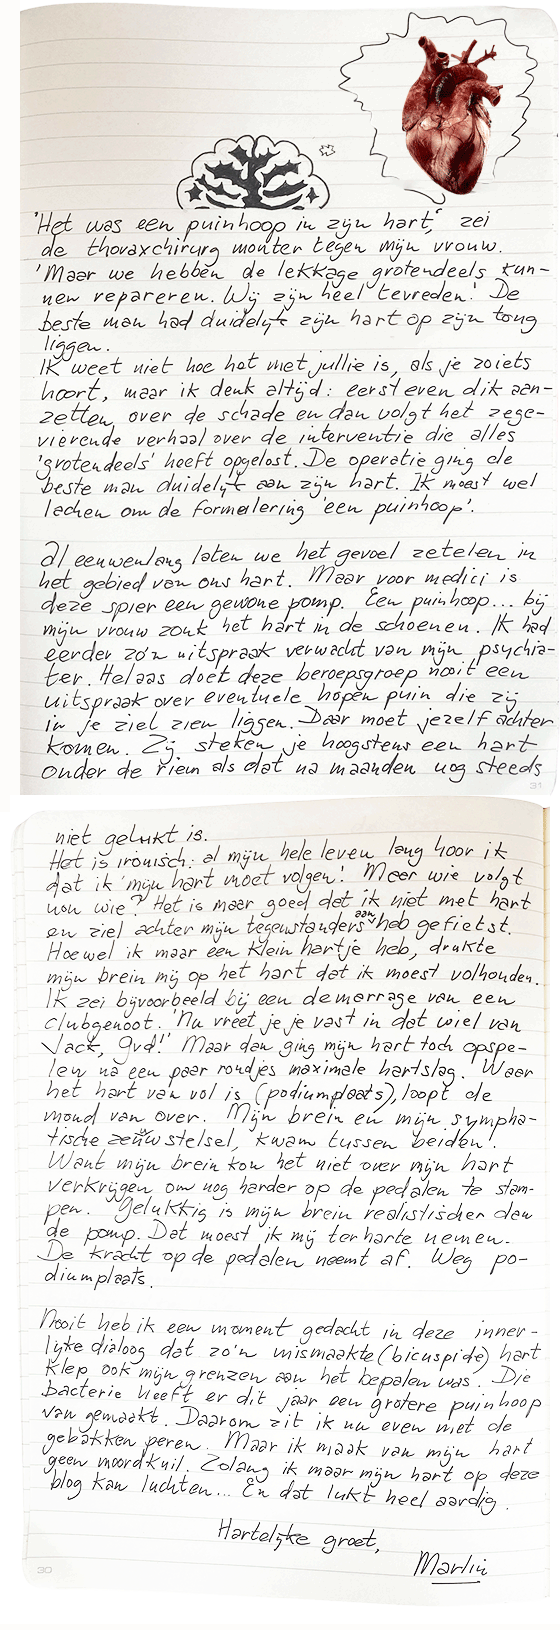 'Het was een puinhoop in zijn hart,' zei
de thoraxchirurg monter tegen mijn vrouw.
'Maar we hebben de lekkage grotendeels kun-
nen repareren. Wij zijn heel tevreden! De
beste man had duidelijk zijn hart op zijn tong
liggen.
Ik weet niet hoe het met jullie is, als je zoiets
hoort, maar ik denk altijd: eerst even dik aan-
zetten over de schade en dan volgt het zege-
vierende verhaal over de interventie die alles
'grotendeels' heeft opgelost. De operatie ging de
beste man duidelijk aan zijn hart. Ik moest wel
lachen om de formulering 'een puinhoop'.
Al eeuwenlang laten we het gevoel zetelen in
het gebied van ons hart. Maar voor medici is
deze spier een gewone pomp. Een puinhoop... bij
mijn vrouw zonk het hart in de schoenen. Ik had
eerder zo'n uitspraak verwacht van mijn psychia-
ter. Helaas doet deze beroepsgroep nooit een
uitspraak over eventuele hopen puin die zij
in je ziel zien liggen. Daar moet jezelf achter
komen. Zij steken je hoogstens een hart
onder de riem als dat na maanden nog steeds
31
niet gelukt is.
Het is ironisch: al mijn hele leven lang hoor ik
dat ik 'mijn hart moet volgen! Maar wie volgt
nou wie? Het is maar goed dat ik niet met hart
en ziel achter mijn tegenstanders aan heb gefietst.
Hoewel ik maar een klein hartje heb, drukte
mijn brein mij op het hart dat ik moest volhouden.
Ik zei bijvoorbeeld bij een demarrage van een
clubgenoot. 'Nu vreet je je vast in dat wiel van
Jack, gvd!' Maar dan ging mijn hart toch opspe-
len na een paar rondjes maximale hartslag. Waar
het hart van vol is (podiumplaats), loopt de
mond van over. Mijn brein en mijn sympha-
tische zenuwstelsel, kwam tussen beiden!
Want mijn brein kon het niet over mijn hart
verkrijgen om nog harder op de pedalen te stam-
pen. Gelukkig is mijn brein realistischer dan
de pomp. Dat moest ik mij ter harte nemen.
De kracht op de pedalen neemt af. Weg po-
diumplaats.
Nooit heb ik een moment gedacht in deze inner-
lijke dialoog dat zo'n mismaakte (bicuspide) hart
klep ook mijn grenzen aan het bepalen was. Die
bacterie heeft er dit jaar een grotere puinhoop
van gemaakt. Daarom zit ik nu even met de
gebakken peren. Maar ik maak van mijn hart
geen moordkuil. Zolang ik maar mijn hart op deze
blog kan luchten... En dat lukt heel aardig.
Hartelijke groet,
Marlin
30